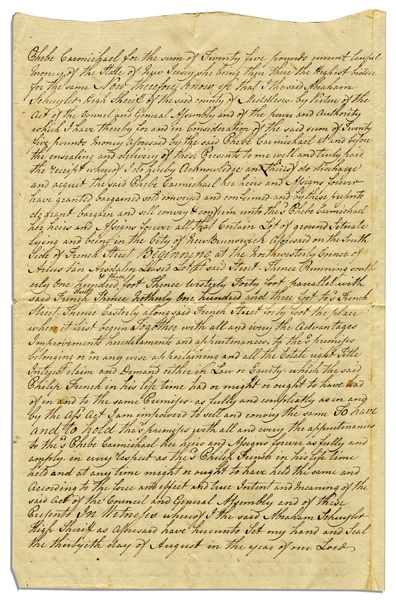 Phebe Carmichael for the sum of Twenty five pounds current lawful
money of the State of New Jersey she being then there the Highest bidder
for the same Now therefore know ye that I the said Abraham
Schuyler High Sheriff of the said county of Middlesex by Virtue of the
Act of the Council and General Assembly and of the power and Authority
which I have thereby for and in Consideration of the said sum of Twenty
five pounds money aforesaid by the said Phebe Carmichael at and before
the ensealing and delivery of these Presents to me well and truly paid
the receipt whereof I do hereby Acknowledge and thereof do discharge
and acquit the said Phebe Carmichael her heirs and Assigns forever
have granted bargained sold conveyed and confirmed and by these presents
do grant bargain and sell convey & confirm unto the sd Phebe Carmichael
her heirs and Assigns forever all that Certain Lot of ground Situate
lying and being in the City of New Brunswick aforesaid on the South
Side of French Street Beginning at the Northwesterly Corner of
Van Arsdalen Leased Lot at said Street Thence Running south
erly One hundred & three foot Thence westerly Forty foot parallel with
said French Thence Northerly One hundred and three foot To French
Street Thence Easterly along said French Street Forty foot the place
where it first began Together with all and every the Advantages
Improvements hereditaments and appurtenances to the sd premises
belonging or in any wise appertaining and all the Estate right Title
Interest claim and Demand either in Law or Equity which the said
Philip French in his life time had or might or ought to have had
of in and to the same Premises as fully and compleatly as in and
by the Afsd Act I am impowered to sell and convey the same To have
and to hold the sd premises with all and every the appurtenances
to the sd Phebe Carmichael her heirs and Assigns forever as fully and
amply in every respect as the sd Philip French in his life time
held and at any time might or ought to have held the same and
According to the force and effect and true Intent and meaning of the
said Act of the Council and General Assembly and of these
Presents In Witness whereof I the said Abraham Schuyler
High Sheriff as aforesaid have hereunto set my hand and Seal
the thirtyeth day of August in the year of our Lord